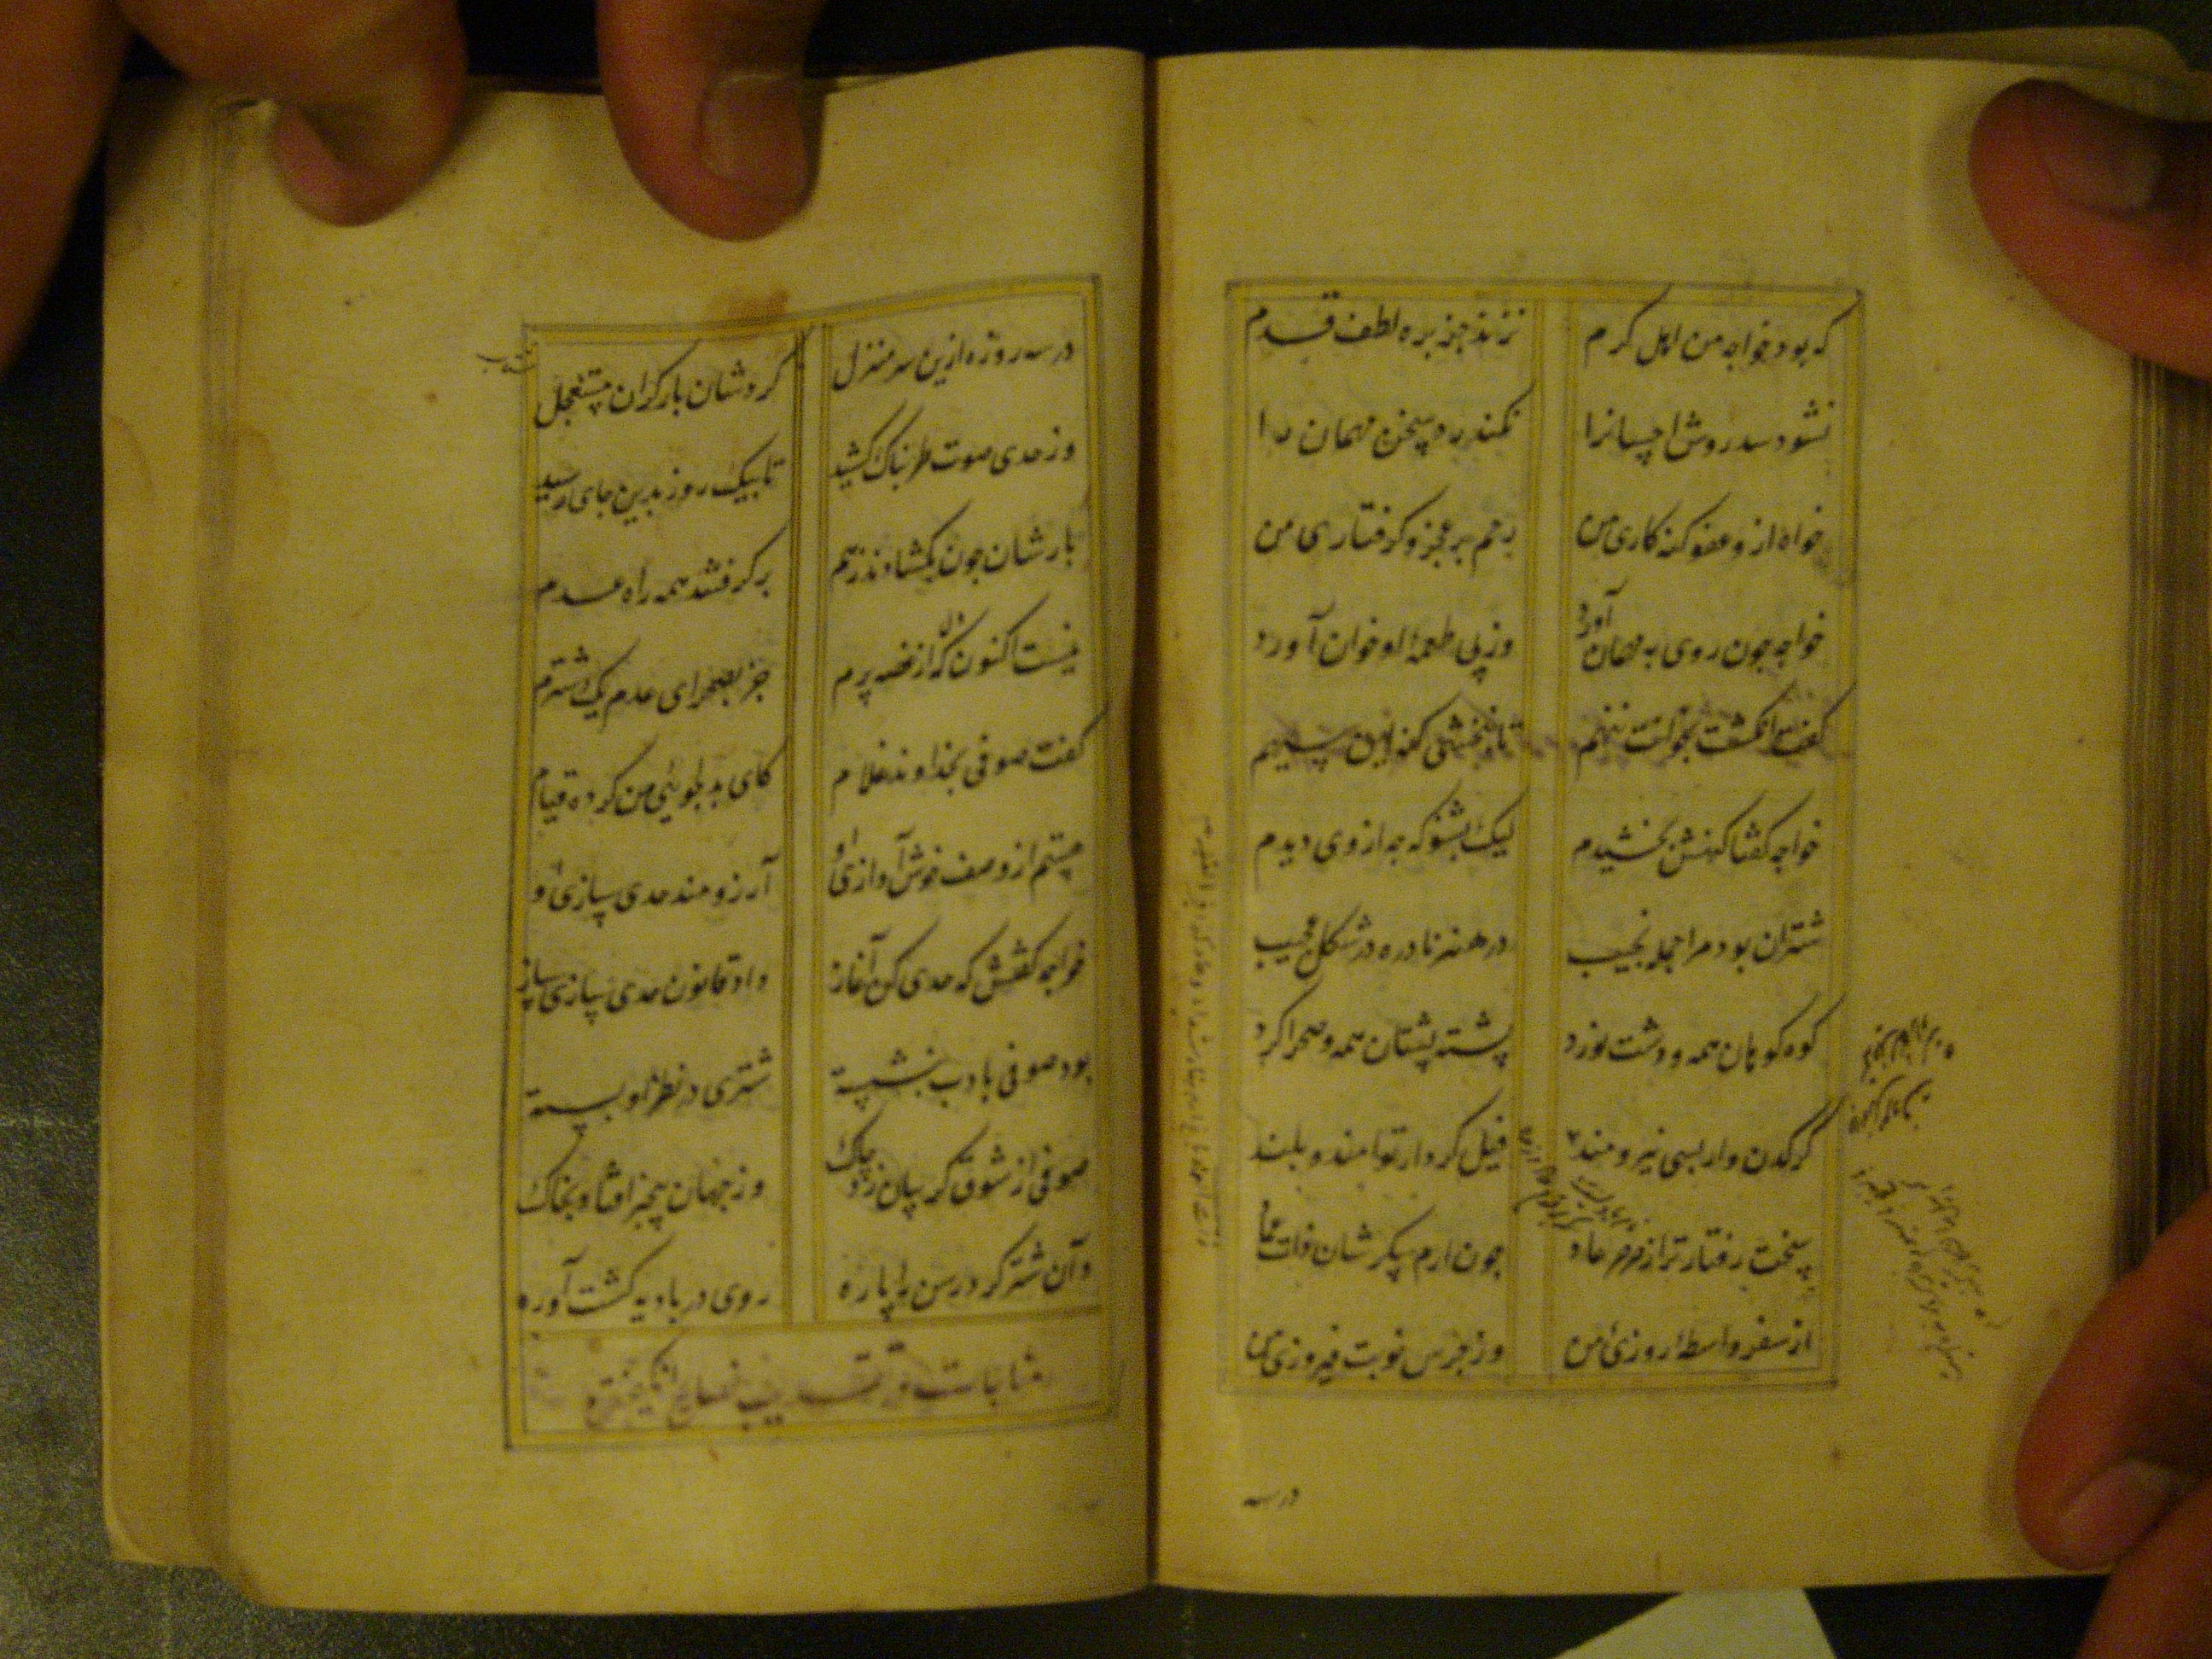 که بود خواجه من اهل کرم نزند جز بره لطف قدم
نشود سد روش احسانرا نکند رد سخن مهمان را
خواه ازو عفو کنه کاری من رحم بر عجز و کرفتاری من
خواجه چون روی به مهمان آورد وز پی طعمه او خوان آورد
کفت انکشت بخوانت ننهم تا نبخشی کنه این سیهم
خواجه کفتا کنهش بخشیدم لیک بشنو که چه از وی دیدم
شتران بود مرا جمله نجیب در هنر نادره در شکل عجیب
کوه کوهان همه و دشت نورد پشته پشتان همه و صحرا کرد
کرکدن وار بسی نیرومند فیل کردار توانمند و بلند
سخت رفتار تر از صرصر عاد چون ارم پیکر شان ذات عماد
از سفر واسطه روزی من وز جرس نوبت فیروزی من
درسه
در سه روزه ازین سر منزل کردشان بار کران مستعجل
وز حدی صوت طربناک کشید تا بیک روز بدین جای رسید
بارشان چون بکشادند ز هم بر کرفتند همه راه عدم
نیست اکنون که دل از غصه پرم جز بصحرای عدم یک شترم
کفت صوفی بخداوند غلام کای بدلجوئی من کرده قیام
هستم از وصف خوش آوازی او آرزومند حدی سازی او
خواجه کفتش که حدی کن آغاز داد قانون حدی سازی ساز
بود صوفی بادب بنشسته شتری در نظر او بسته
صوفی از شوق کریبان زد چاک وز جهان بیخبر افتاد بخاک
وان شتر کرد رسن را پاره روی در بادیه کشت آواره